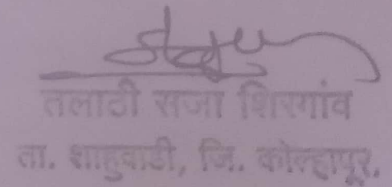 तलाठी सजा शिरगांव
ता. शाहुवाडी, जि. कोल्हापूर.